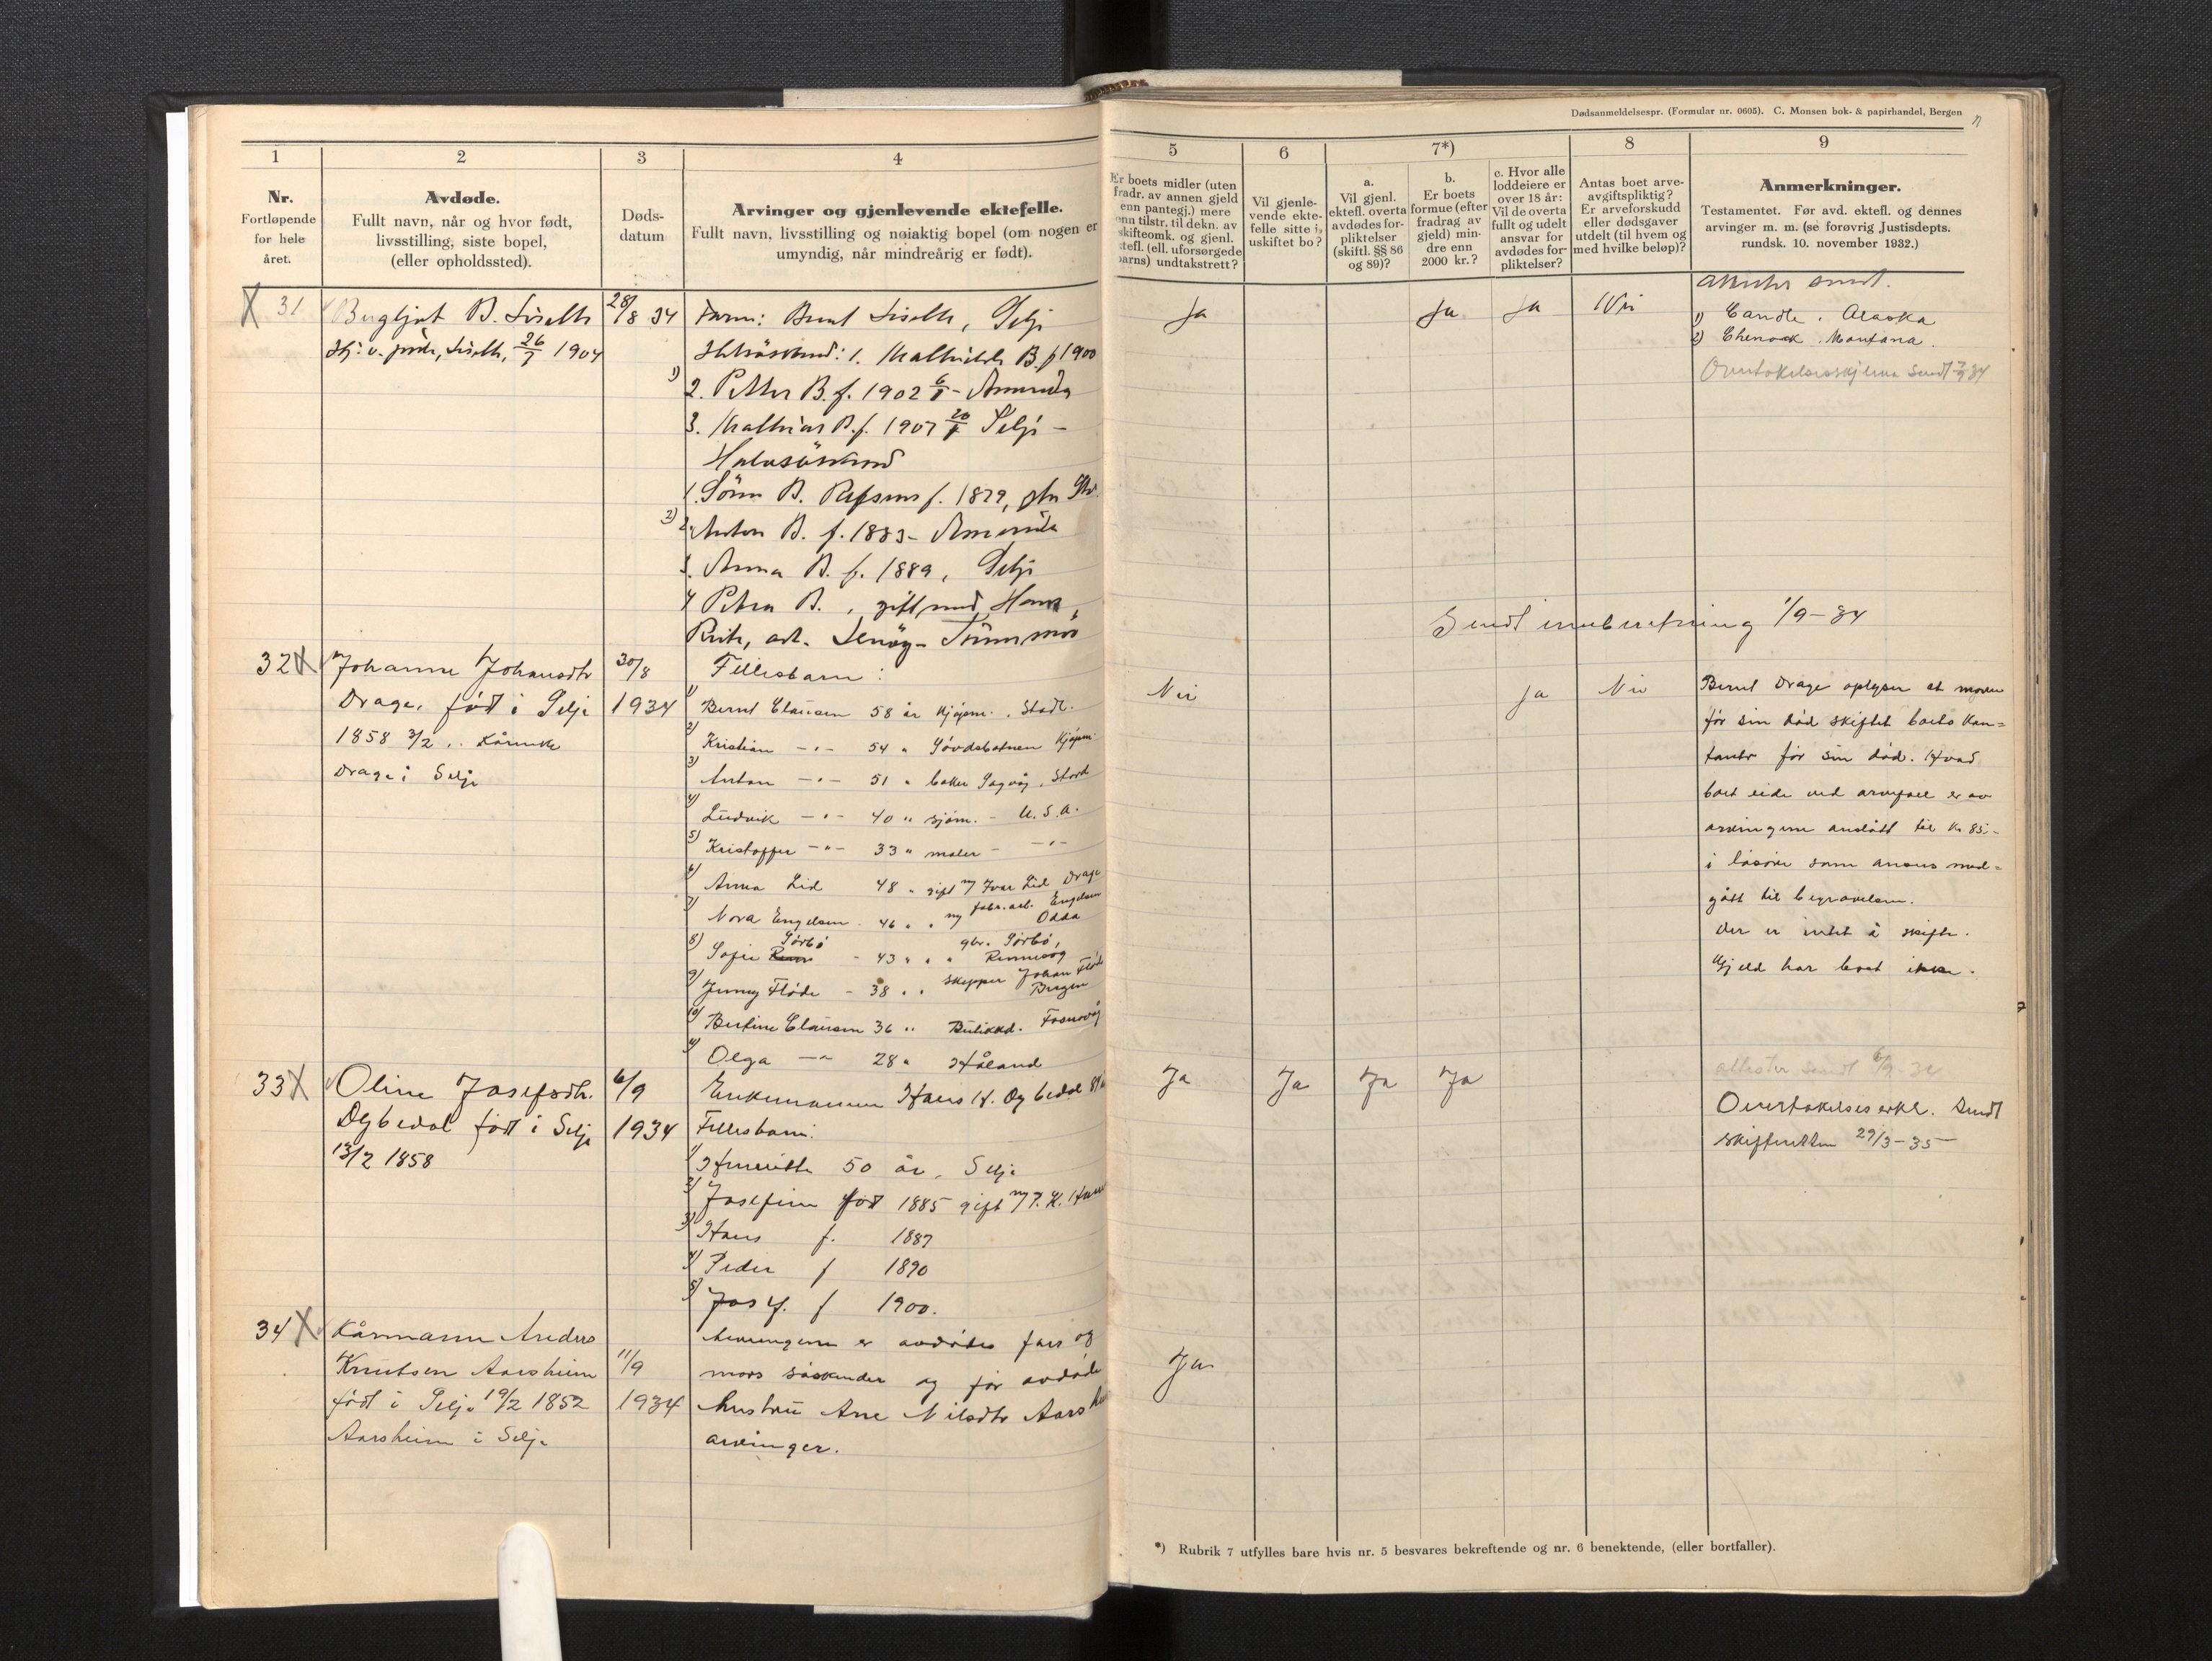 Dødsanmeldelsespr. (Formular nr. 0605). C. Monsen bok- & papirhandel, Bergen
1
2
3
4
5
6
7*)
8
9
Nr.
Fortløpende
for hele
året.
Avdøde.
Fullt navn, når og hvor født,
livsstilling, siste bopel,
(eller opholdssted).
Døds-
datum
Arvinger og gjenlevende ektefelle.
Fullt navn, livsstilling og nøiaktig bopel (om nogen er
umyndig, når mindreårig er født).
Er boets midler (uten
fradr. av annen gjeld
enn pantegj.) mere
enn tilstr. til dekn. av
skifteomk. og gjenl.
ktefl. (ell. uforsørgede
barns) undtakstrett?
Vil gjenle-
vende ekte-
felle sitte i
uskiftet bo?
a.
Vil gjenl.
ektefl. overta
avdødes for-
pliktelser
(skiftl. §§ 86
og 89)?
b.
Er boets
formue (efter
fradrag av
gjeld) min-
dre enn
2000 kr.?
c. Hvor alle
loddeiere er
over 18 år:
Vil de overta
fullt og udelt
ansvar for
avdødes for-
pliktelser?
Antas boet arve-
avgiftspliktig?
Er arveforskudd
eller dødsgaver
utdelt (til hvem og
med hvilke beløp)?
Anmerkninger.
Testamentet. Før avd. ektefl. og dennes
arvinger m. m. (se forøvrig Justisdepts.
rundsk. 10. november 1932.)
X 31
Bergljot B.
26/7 1904
28/8 34
Selje
1. Mathilde B. f 1900
1) 2. Petter B. f. 1902 - Amerika
3. Mathias B. f. 1907 Selje -
Halvsøskend
1. B. f. 1879,
2) 2. Anton B. f. 1883 - Amerika
3. Anna B. f. 1889, Selje
4 Petra B., gift med Hans
Ja
Ja
Ja
Nei
sendt.
1) Candle, Alaska
2) Montana.
Overtakelsesskjema sendt 34
Sendt innberetning 1/9-34
32 X
Johanne Johansdtr
Drage, født i Selje
1858 3/2, Kårenke
Drage i Selje
30/8
1934
Fellesbarn:
1) Bernt Clausen 58 år kjøpm., Stadt.
2) Kristian -"- 54 " Søvdebotnen kjøpm.
3) Anton -"- 51 " baker Sagvåg, Stord
4) Ludvik -"- 40 " sjøm. - U.S.A.
5) Kristoffer -"- 33 " maler - -"-
6) Anna Lid 48 " gift m/ Ivar Lid Drage
7) Nora Engelsen 46 " " m/ fabr.arb. Engelsen
Odda
8) Sofie Sørbø - 43 " " " gbr. Sørbø,
Rennesøy
9) Jenny Fløde - 38 " " skipper Johan Fløde
Bergen
10) Bertine Clausen 36 " Butikkd. Fosnavåg
11) Olga -"- 28 " Håland
Nei
Ja
Nei
Bernt Drage oplyser at moren
før sin død skiftet boets kon-
tanter før sin død. Hvad
boet eide ved arvefall er av
arvingene anslått til kr 85,-
i løsøre som ansees med-
gått til begravelsen.
Der er intet å skifte.
Gjeld har boet ikke.
33 X
Oline Josefsdtr.
Dybedal født i Selje
13/2 1858
6/9
1934
Enkemannen Hans H. Dybedal
Fellesbarn.
1) Henriette 50 år, Selje
2) Josefine født 1885 gift m/
3) Hans f. 1887
4) Peder f 1890
5) Josef. f 1900.
Ja
Ja
Ja
Ja
attester sendt 6/9-34
Overtakelseserkl. sendt
skifteretten 29/3-35
34 X
Kårmann Anders
Knutsen Aarsheim
født i Selje 19/2 1852
Aarsheim i Selje
11/9
1934
Arvingene er avdødes fars og
mors søskender og før avdøde
hustru Ane Nilsdtr Aarsheim
arvinger.
Ja
*) Rubrik 7 utfylles bare hvis nr. 5 besvares bekreftende og nr. 6 benektende, (eller bortfaller).